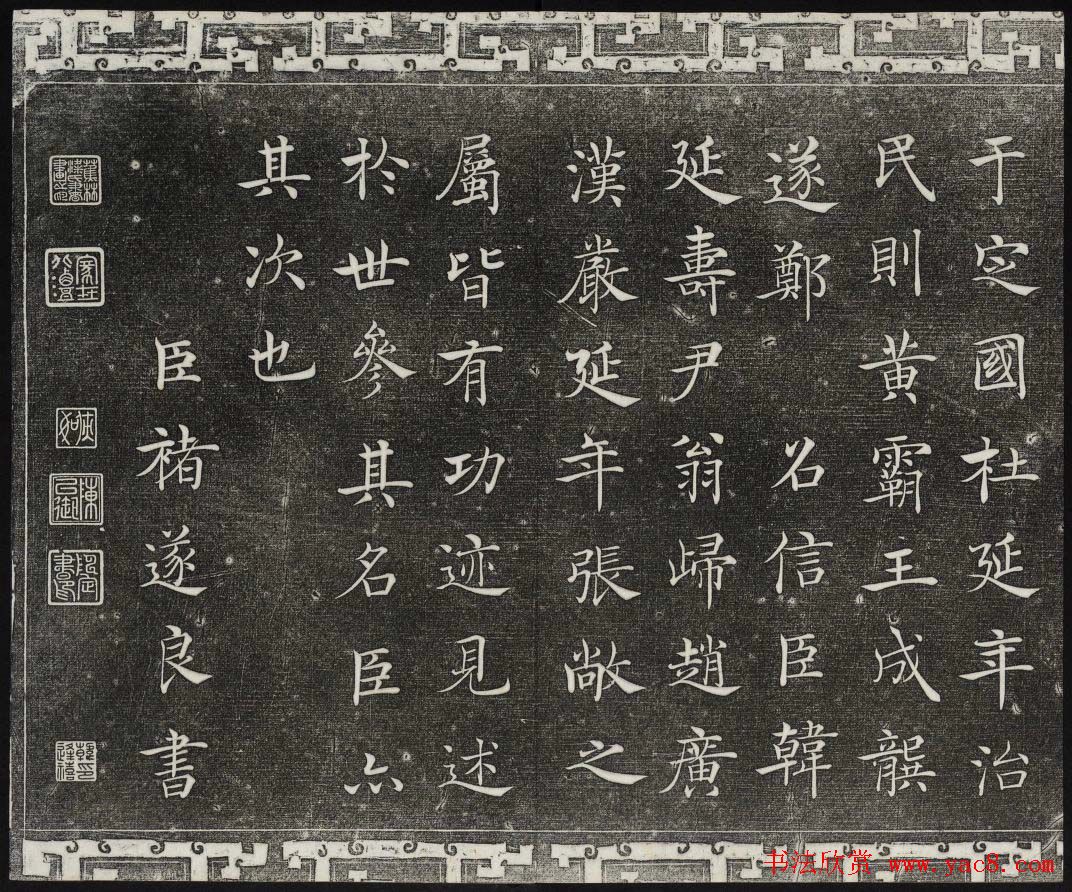 于定國杜延年治
民則黃霸王成龔
遂鄭 名信臣韓
延壽尹翁歸趙廣
漢嚴延年張敞之
屬皆有功迹見述
於世參其名臣亦
其次也
臣褚遂良書
蕉林梁氏書畫之印
书法欣赏 www.yac8.com